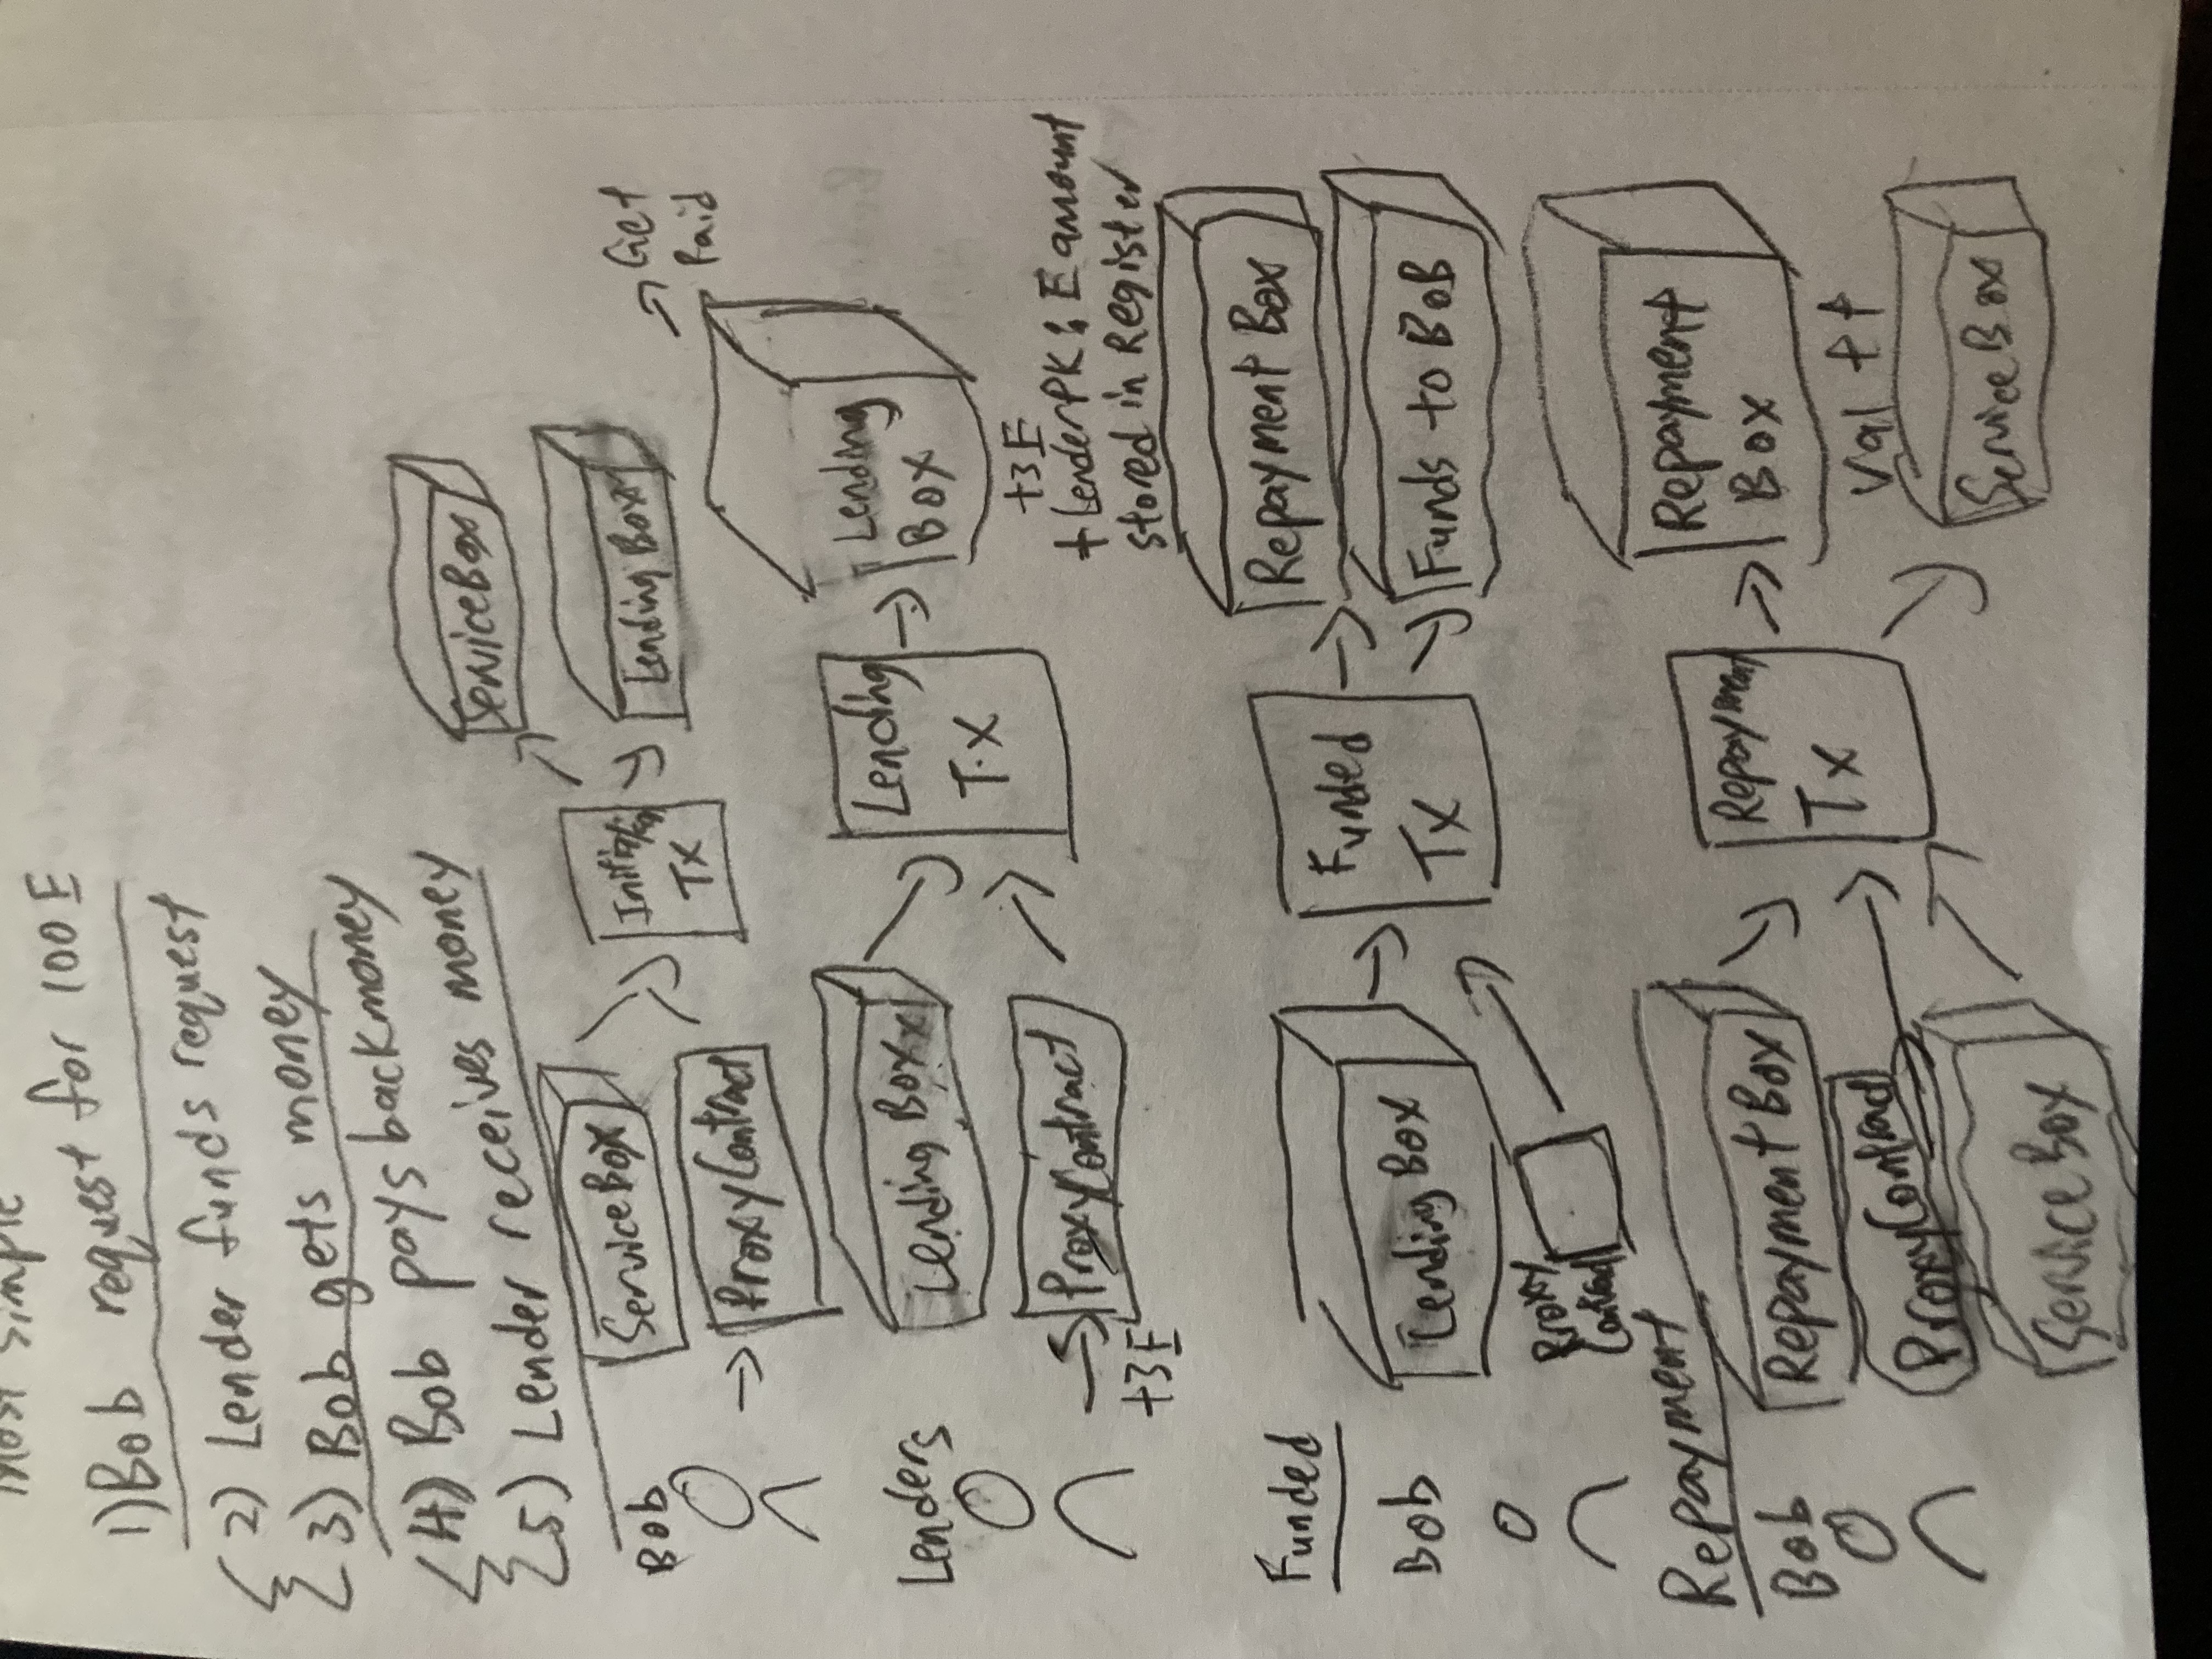 most simple
1) Bob request for 100 E
2) Lender funds request
3) Bob gets money
4) Bob pays back money
5) Lender receives money
Bob
ServiceBox
ProxyContract
Initiation
TX
ServiceBox
Lending Box
Get
Paid
Lenders
Lending Box
ProxyContract
+3E
Lending
TX
Lending
Box
+3E
+ LenderPK : E amount
stored in Register
Funded
Bob
Lending Box
Proxy
Contract
Funded
Tx
Repayment Box
Funds to BoB
Repayment
Bob
Repayment Box
ProxyContract
ServiceBox
Repayment
Tx
Repayment
Box
Val ++
ServiceBox